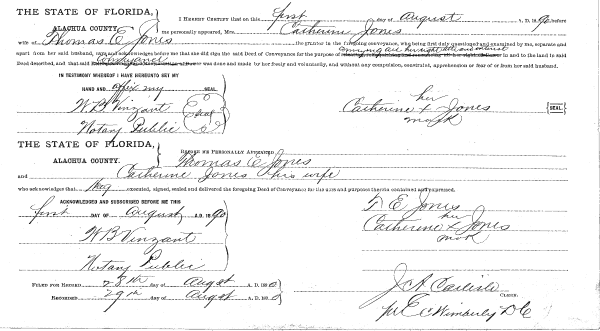 THE STATE OF FLORIDA,
ALACHUA COUNTY.
I HEREBY CERTIFY that on this first day of August A. D. 1890, before
me personally appeared, Mrs. Catherine Jones
wife of Thomas E Jones the grantor in the foregoing conveyance, who being first duly questioned and examined by me, separate and
apart from her said husband, acknowledged before me that she did sign the said Deed of Conveyance for the purpose of conveying all her right title and interest to the land in said
Deed described, and that said conveyance was done and made by her freely and voluntarily, and without any compulsion, constraint, apprehension or fear of or from her said husband.
IN TESTIMONY WHEREOF I HAVE HEREUNTO SET MY
HAND AND affix my SEAL
W. B. Vinzant
Seal
Notary Public
her
Catherine x Jones {SEAL.}
mark
THE STATE OF FLORIDA,
ALACHUA COUNTY.
BEFORE ME PERSONALLY APPEARED Thomas E Jones
and Catherine Jones his wife
who acknowledge that they executed, signed, sealed and delivered the foregoing Deed of Conveyance for the uses and purposes therein contained and expressed.
ACKNOWLEDGED AND SUBSCRIBED BEFORE ME THIS
first DAY OF August A. D. 1890
W B Vinzant
Notary Public
T E Jones
her
Catherine x Jones
mark
FILED FOR RECORD 28th day of August A. D. 1890
RECORDED 29th day of August A. D. 1890
J A Carlisle
CLERK.
per E C Wimberly D C